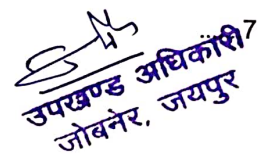 7
उपखण्ड अधिकारी
जोबनेर, जयपुर